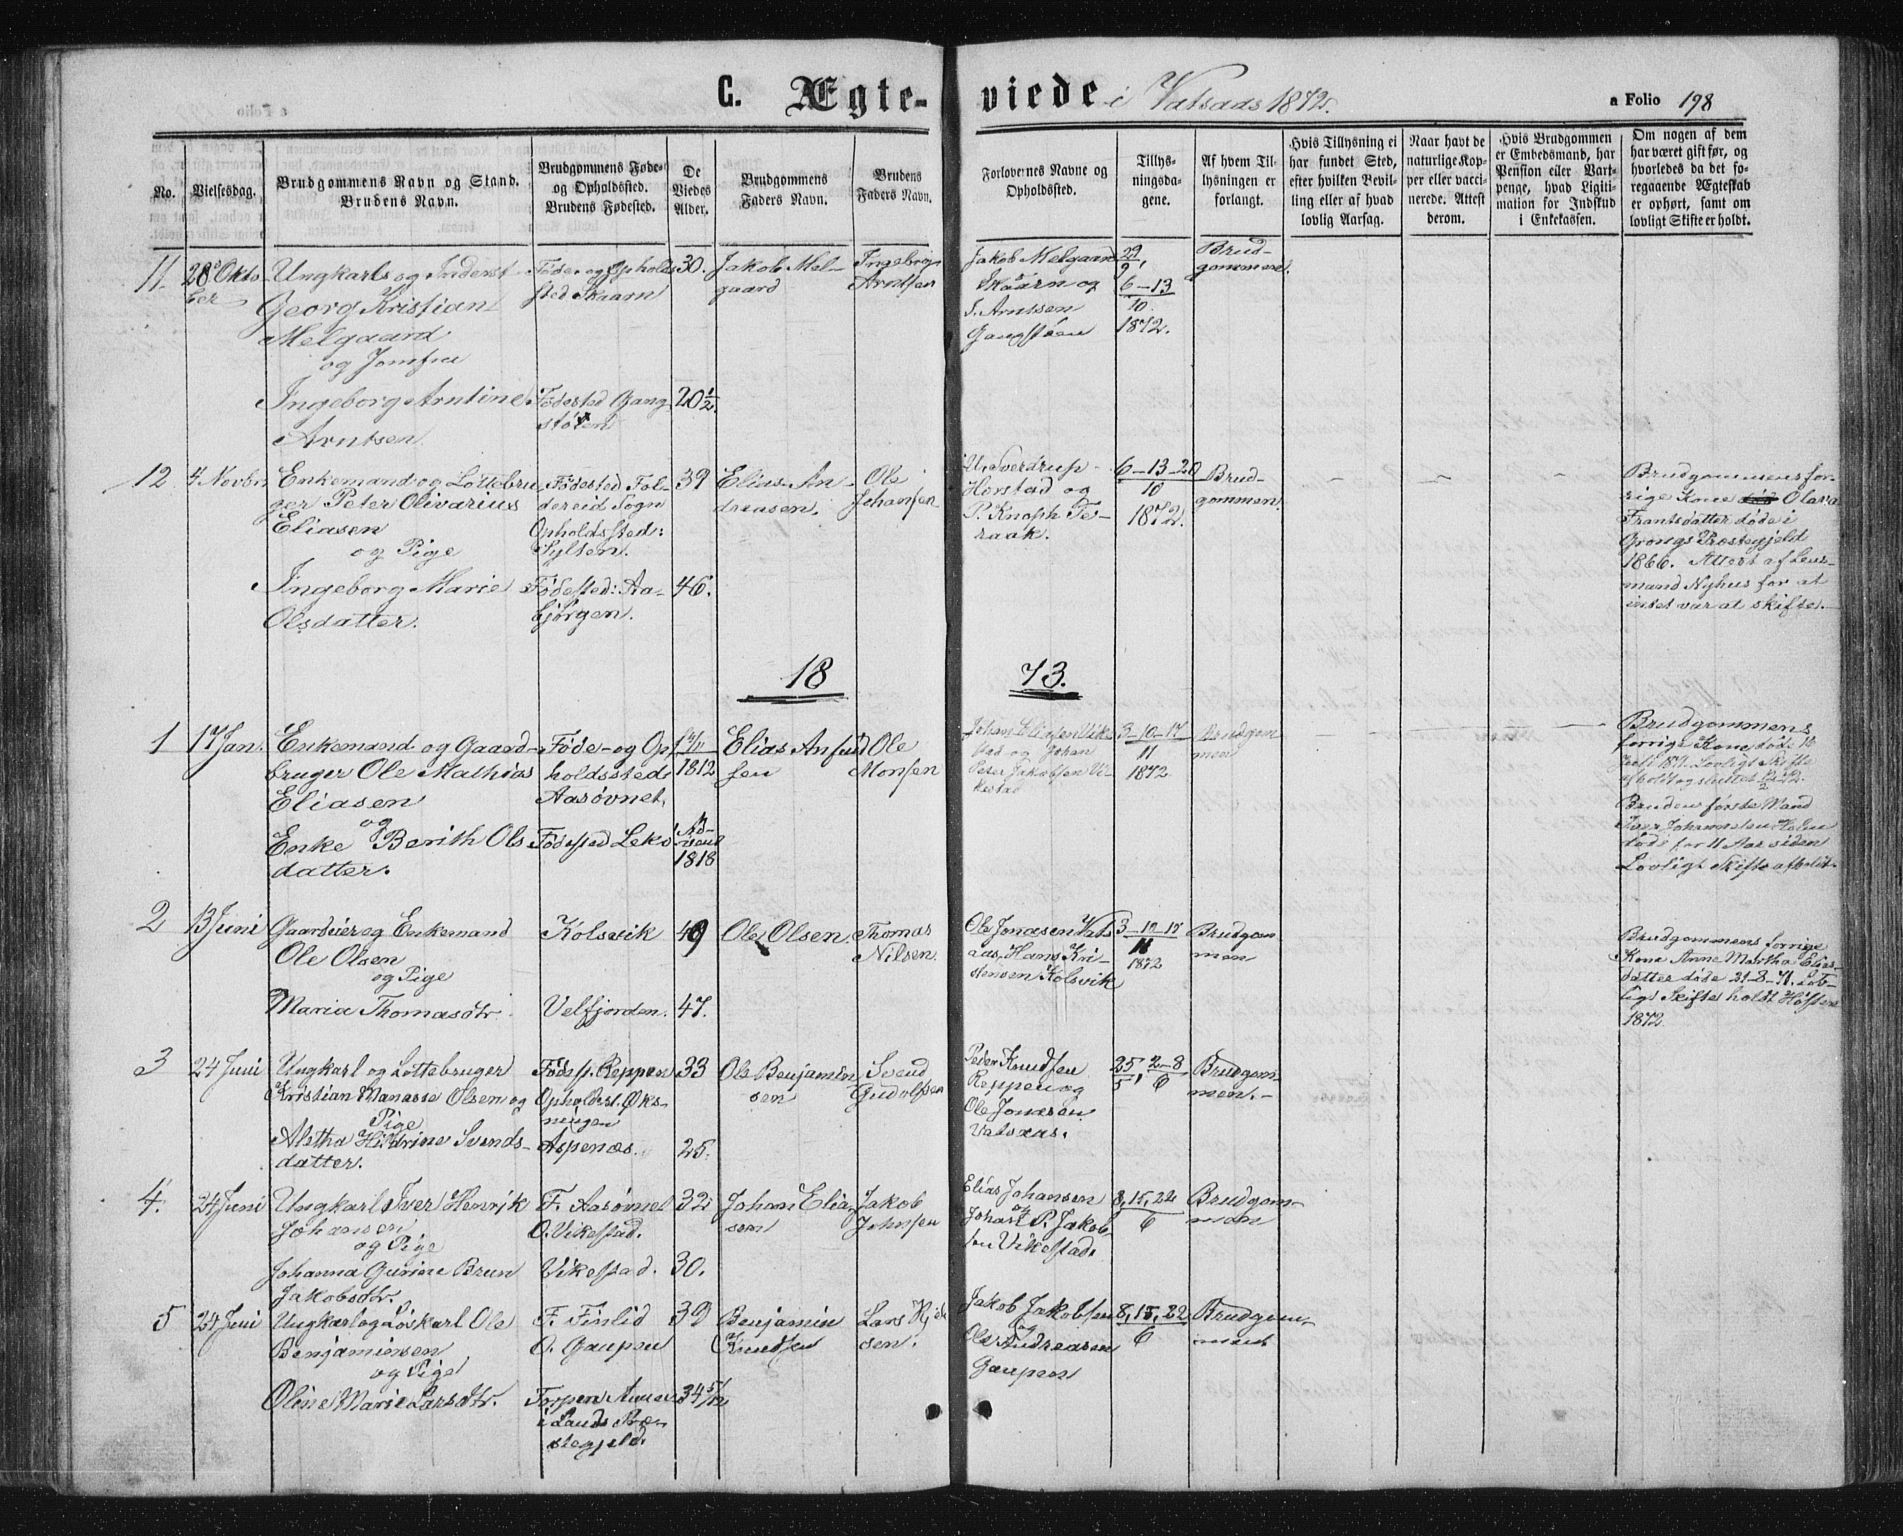 C. Ægte-viede i Vatsaas 1872.
a Folio 198
No.
Vielsesdag.
Brudgommens Navn og Stand.
Brudens Navn.
Brudgommens Føde-
og Opholdssted.
Brudens Fødested.
De
Viedes
Alder.
Brudgommens
Faders Navn.
Brudens
Faders Navn.
Forlovernes Navne og
Opholdssted.
Tillys-
ningsda-
gene.
Af hvem Til-
lysningen er
forlangt.
Hvis Tillysning ei
har fundet Sted,
efter hvilken Bevil-
ling eller af hvad
lovlig Aarsag.
Naar havt de
naturlige Kop-
per eller vacci-
nerede. Attest
derom.
Hvis Brudgommen
er Embedsmand, har
Pension eller Vart-
penge, hvad Ligiti-
mation for Indskud
i Enkekassen.
Om nogen af dem
har været gift før, og
hvorledes da det fo-
regaaende Ægteskab
er ophørt, samt om
lovligt Skifte er holdt.
11.
28 Okto
ber
Ungkarl og Inderst
Georg Kristian
Melgaard
og Jomfru
Ingeborg Arntine
Arntsen
Føde- og Opholds
sted Skaarn
Fødested Gang
støen
30.
20 1/2
Jakob Mel-
gaard
Ingebrigt
Arntsen
Jakob Melgaard
Skaarn og
I. Arntsen
Gangstøen
29/9,
6-13
10.
1872.
Brud-
gommen.
12
4 Novbr.
Enkemand og Lottebru
ger Peter Olivarius
Eliasen
og Pige
Ingeborg Marie
Olsdatter.
Fødested Fol-
dereid Sogn
Opholdssted:
Sylsen.
Fødested: Aa-
bjørgen.
39
46.
Elias An
dreasen.
Ole
Johansen
Sverdrup
Horstad og
P. Knoph Te-
raak.
6-13-20
10
1872.
Brud-
gommen.
Brudgommens for-
rige Kone Olava
Frantsdatter døde i
Grongs Præstegjeld
1866. Attest af Lens-
mand Nyhus for at
intet var at skifte.
1873.
1
17 Jan.
Enkemand og Gaard-
bruger Ole Mathias
Eliasen
og
Enke Berith Ols
datter.
Føde- og Op-
holdssted
Aasøvnet.
Fødested Lekø
1812
Ad-
vent
1818
Elias Anfind
sen
Ole
Monsen
Johan Eliasen Vike
stad og Johan
Peter Jakobsen Vi-
kestad
3-10-17
11
1872.
Brudgom
men
Brudgommens
forrige Kone døde
1871. Lovligt Skifte
afholdt og sluttet
Brudens første Mand
Iver Johannesen Holm
døde for 11 Aar siden
Lovligt Skifte afholdt.
2
13 Juni
Gaardeier og Enkemand
Ole Olsen
og Pige
Maria Thomasdtr.
Kolsvik
Velfjorden.
49
47.
Ole Olsen.
Thomas
Nilsen.
Ole Jonasen Vats
aas, Hans Kri-
stensen Kolsvik
3-10-17
11
1872
Brudgom
men
Brudgommens forrige
Kone Anne Martha Elias-
datter døde 21-8-71. Lov-
ligt Skifte holdt Høsten
1872.
3
24 Juni
Ungkarl og Lottebruger
Kristian Manasse Olsen og
Pige
Aletha Hildrine Svends-
datter.
Fødesp. Reppen
Opholdst. Øks-
ningen
Aspenæs.
33
25.
Ole Benjamin
sen
Svend
Gudolfsen
Peder Knudsen
Reppen og
Ole Jonasen
Vatsaas.
25/5, 2-8/6
Brudgom-
men.
4.
24 Juni
Ungkarl Iver Henrik
Johansen
og Pige
Johanna Gurine Brun
Jakobsdtr.
F. Aasøvnet
O. Vikestad.
Vikestad.
32
30.
Johan Elia-
sen
Jakob
Johnsen
Elias Johansen
og
Johan P. Jakob-
sen Vikestad.
8, 15, 22
6
Brudgom-
men
5
24 Juni
Ungkarl og Løskarl Ole
Benjaminsen
og Pige
Oline Marie Larsdtr.
F. Finlid
O. Gaupen
Torpen Annex
i Lands Præ-
stegjeld.
39
34 5/12
Benjamin
Knudsen
Lars
sen.
Jakob Jakobsen
og
Ole Andreasen
Gaupen
8, 15, 22
6
Brudgom-
men